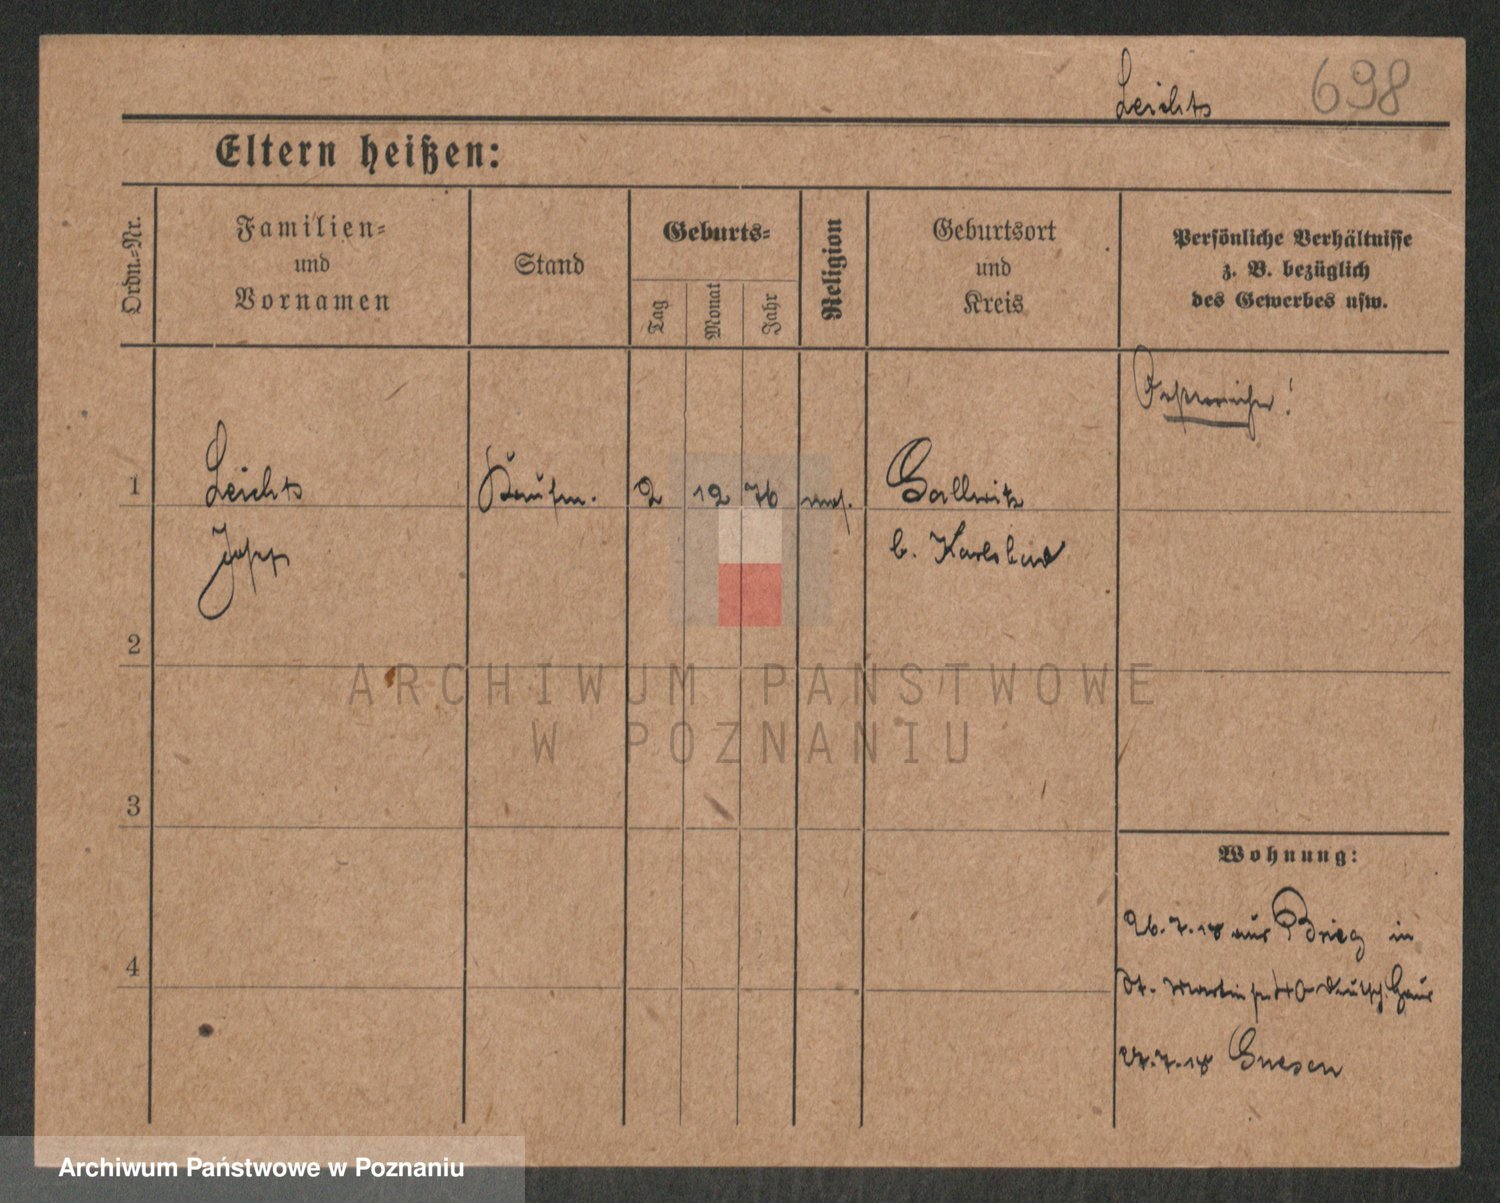 Leichts 698
Eltern heißen:
Ordn.-Nr.
Familien-
und
Vornamen
Stand
Geburts-
Tag
Monat
Jahr
Religion
Geburtsort
und
Kreis
Persönliche Verhältnisse
z. B. bezüglich
des Gewerbes usw.
Oesterreicher!
1 Leichts Kaufm. 2 12 76 mos. Gallwitz
Josef b. Karlsbad
2
ARCHIWUM PAŃSTWOWE
W POZNANIU
3
Wohnung:
26.7.18 aus Brieg in
4
St. Martinstr 40 Deutsch. Haus
27.7.18 Gnesen
Archiwum Państwowe w Poznaniu